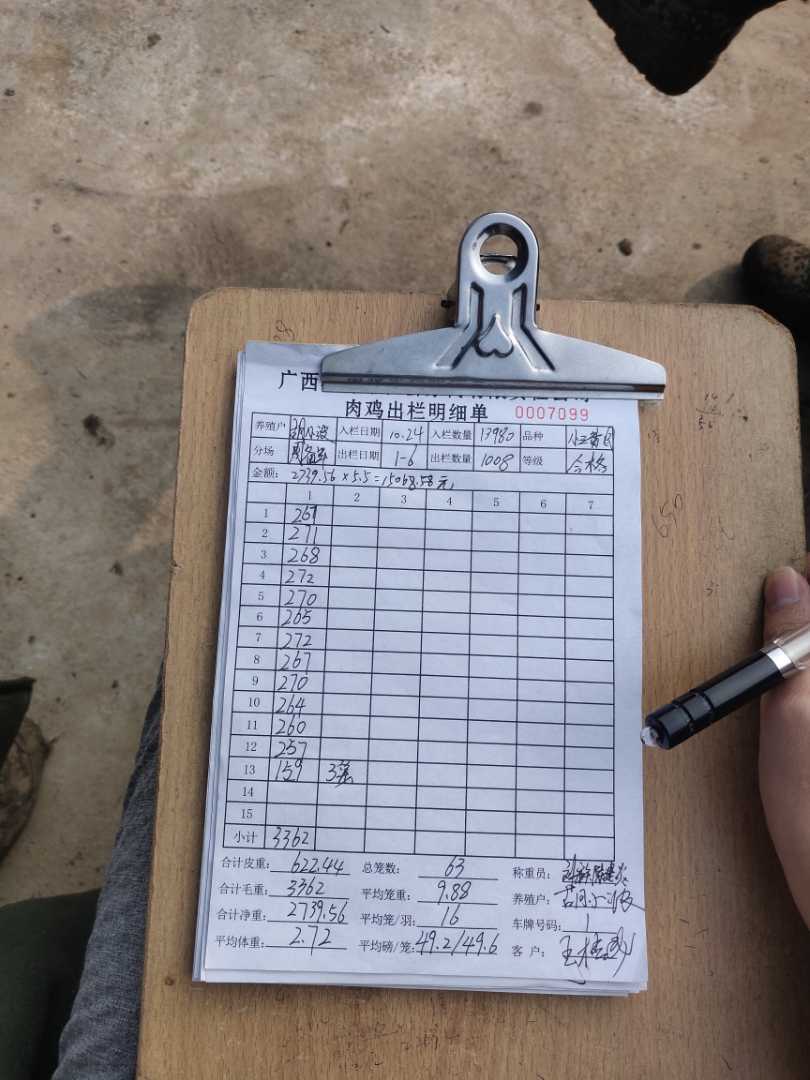 广西
肉鸡出栏明细单 0007099
养殖户 入栏日期 10.24 入栏数量 13980 品种
分场 出栏日期 1-6 出栏数量 1008 等级 合格
金额: 2739.56 x 5.5 = 15067.58元
1 2 3 4 5 6 7
1 267
2 271
3 268
4 272
5 270
6 265
7 272
8 267
9 270
10 264
11 260
12 257
13 159 3笼
14
15
小计 3362
合计皮重: 622.44 总笼数: 63 称重员:
合计毛重: 3362 平均笼重: 9.88 养殖户:
合计净重: 2739.56 平均笼/羽: 16 车牌号码: 1
平均体重: 2.72 平均磅/笼: 49.2/49.6 客户: